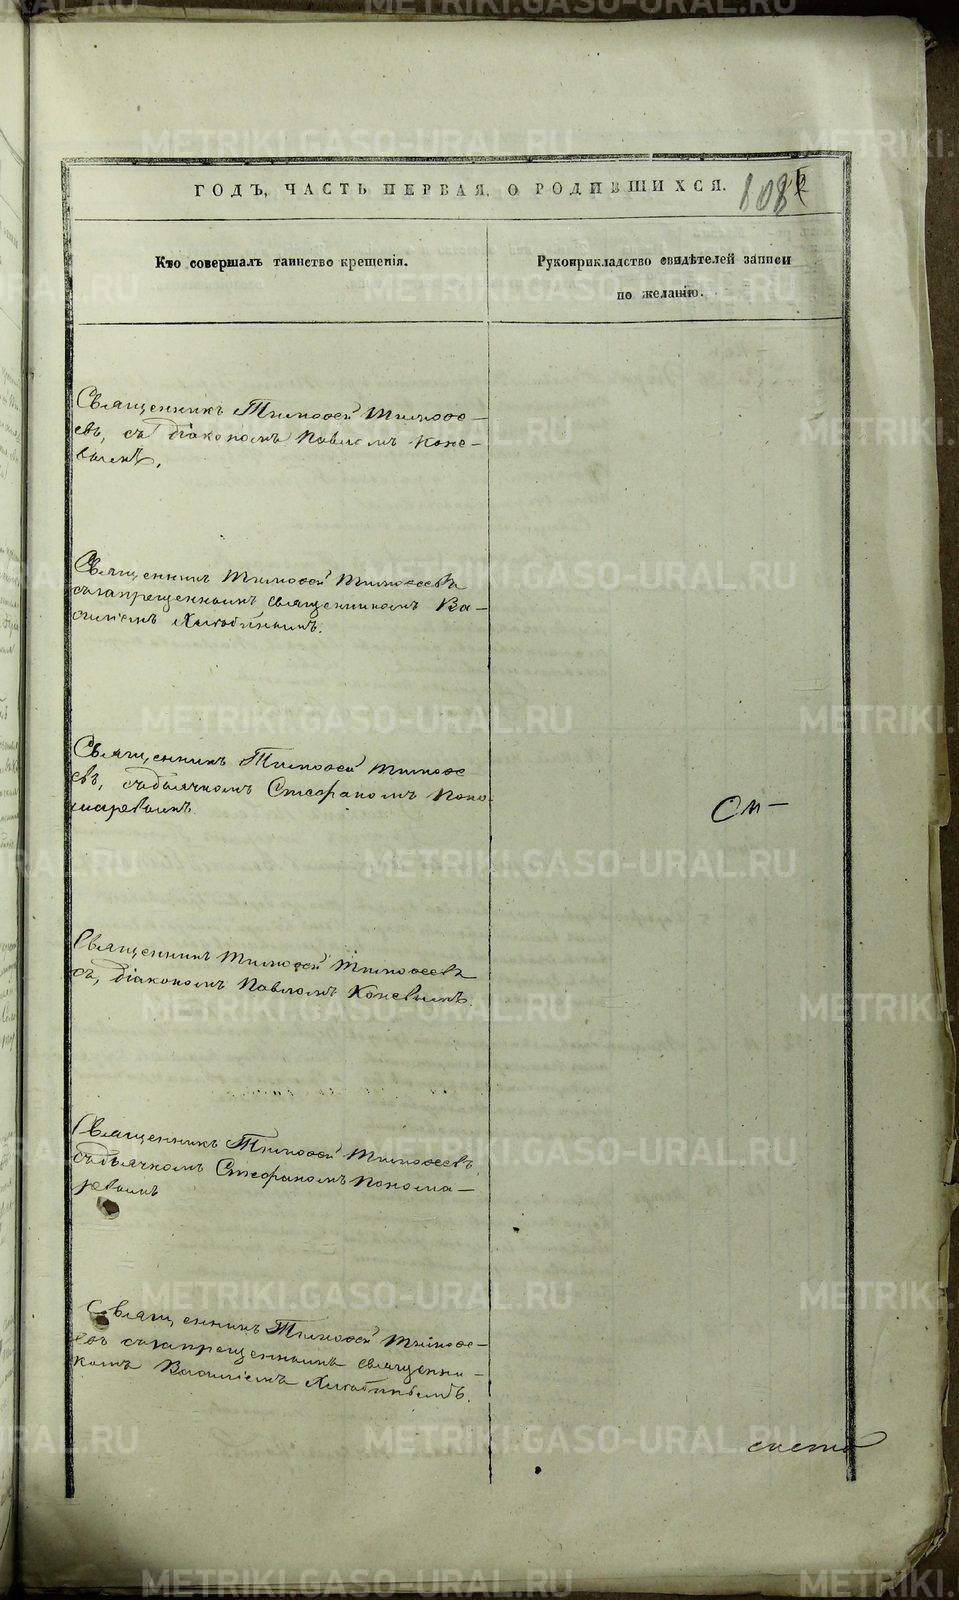 ГОДЪ, ЧАСТЬ ПЕРВАЯ, О РОДИВШИХСЯ.
Кто совершалъ таинство крещенія.
Рукоприкладство свидѣтелей записи
по желанію.
Священникъ Тимоѳей Тимоѳе-
евъ, съ діакономъ Павломъ Коне-
вымъ.
Священникъ Тимоѳей Тимоѳеевъ
съ запрещеннымъ священникомъ Ва-
силіемъ
Священникъ Тимоѳей Тимоѳе
евъ, съ дьячкомъ Стефаномъ Поно
маревымъ
Священникъ Тимоѳей Тимоѳеевъ
съ, діакономъ Павломъ Коневымъ.
Священникъ Тимоѳей Тимоѳеевъ,
съ дьячкомъ Стефаномъ Понома-
ревымъ
Священникъ Тимоѳей Тимоѳе-
евъ съ запрещеннымъ священни-
комъ Василіемъ
METRIKI.GASO-URAL.RU